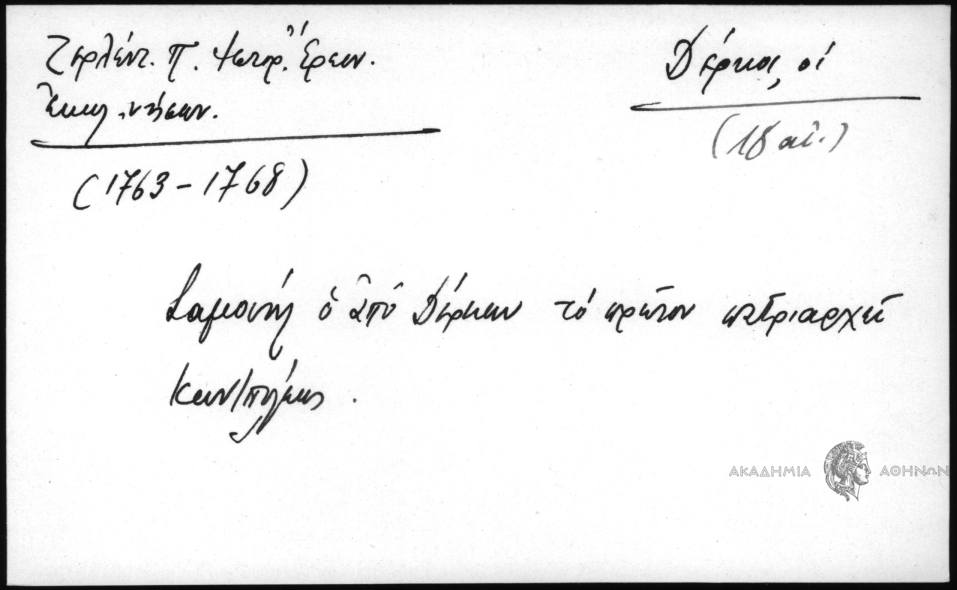 Ζερλέντ. Π. Ἱστορ. Ἔρευν.
Ἐκκλ. νήσων.
(1763-1768)
Δέρκοι, οἱ
(18 αἰ.)
Σαμουὴλ ὁ ἀπὸ Δέρκων τὸ πρῶτον πατριαρχεῖ
Κων/πόλεως.
ΑΚΑΔΗΜΙΑ ΑΘΗΝΩΝ